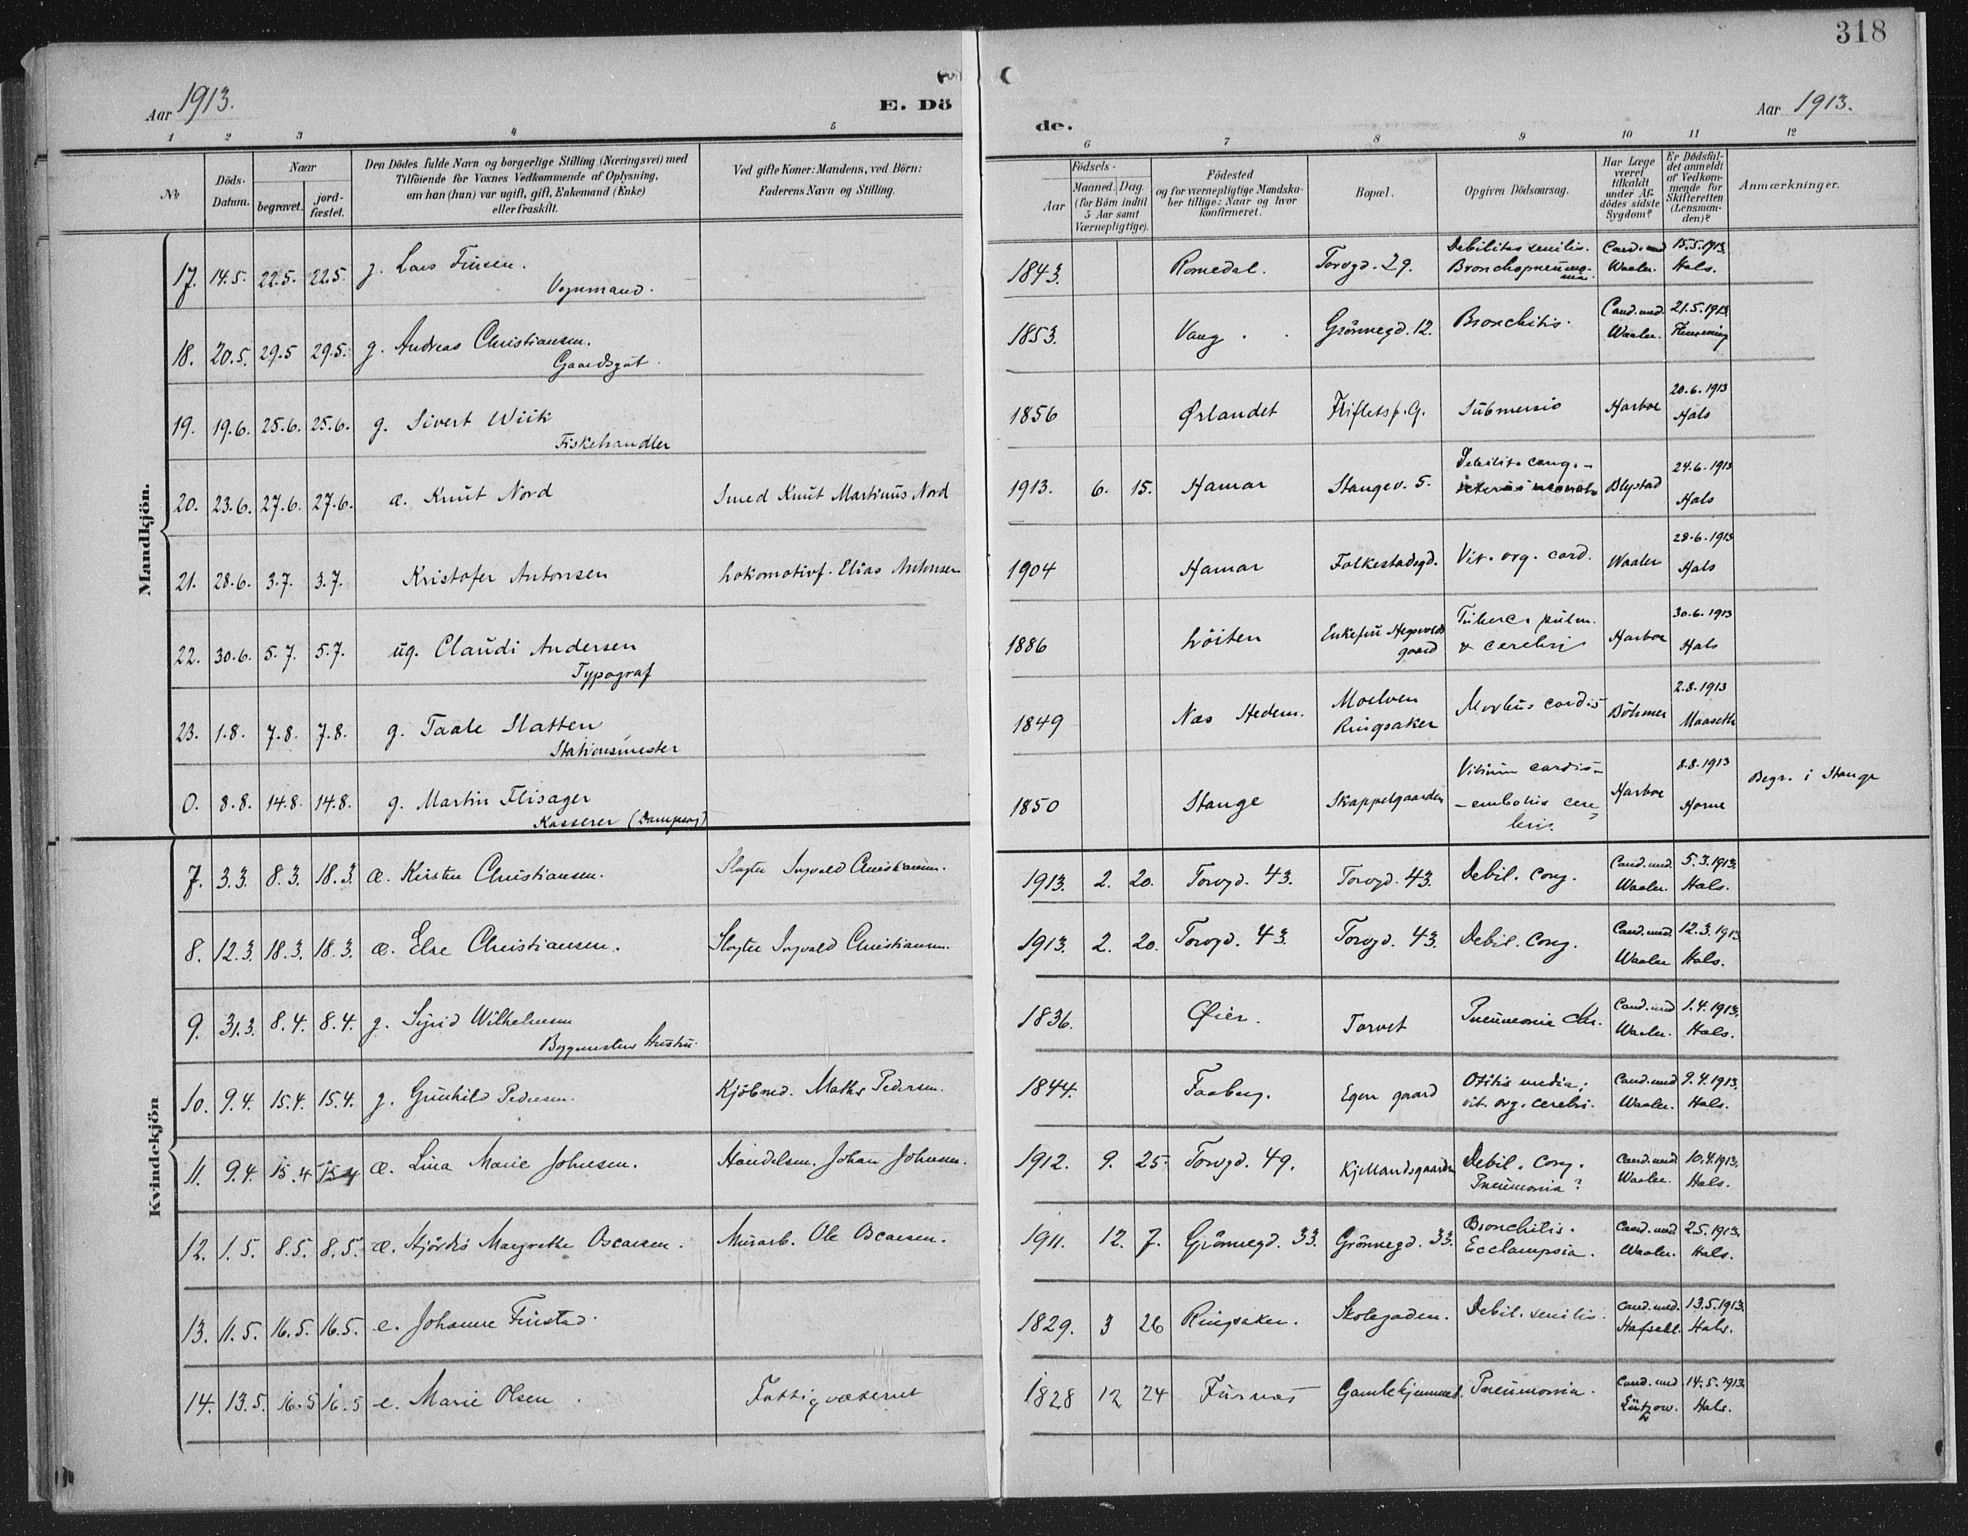 318
Aar 1913.
E. Dö de.
Aar 1913.
1 2 3 4 5 6 7 8 9 10 11 12
No
Döds-Datum.
Naar
begravet. jord-fæstet.
Den Dödes fulde Navn og borgerlige Stilling (Næringsvei) med
Tilföiende for Voxnes Vedkommende af Oplysning,
om han (hun) var ugift, gift, Enkemand (Enke)
eller fraskilt.
Ved gifte Koner: Mandens, ved Börn:
Faderens Navn og Stilling.
Födsels-
Aar
Maaned. Dag.
(for Börn indtil
5 Aar samt
Værnepligtige).
Födested
og for værnepligtige Mandska-
ber tillige: Naar og hvor
konfirmeret.
Bopæl.
Opgiven Dödsaarsag.
Har Læge
været
tilkaldt
under Af-
dödes sidste
Sygdom?
Er Dödsfal-
det anmeldt
af Vedkom-
mende for
Skifteretten
(Lensman-
den)?
Anmærkninger.
Mandkjön.
17. 14.5. 22.5. 22.5. g. Lars Finsen. Vognmand. 1843. Romedal. Torvgd. 29. Debilitas senilis. Bronchopneumonia. Cand. med Waaler. 15.5.1913 Hals.
18. 20.5. 29.5 29.5. g. Andreas Christiansen. Gaardsgut. 1853. Vang. Grönnegd. 12. Bronchitis. Cand. med Waaler. 21.5.1913 Flemming
19. 19.6. 25.6. 25.6. g. Sivert Wiik Fiskehandler 1856 Ørlandet Submersio Harboe 20.6.1913 Hals
20. 23.6. 27.6. 27.6. æ. Knut Nord Smed Knut Martinus Nord 1913. 6. 15. Hamar Stangev. 5. Debilit. cong. - Blystad 24.6.1913 Hals
21. 28.6. 3.7. 3.7. Kristofer Antonsen Lokomotivf. Elias Antonsen 1904 Hamar Folkestadgd. Vit. org. cord. Waaler 28.6.1913 Hals
22. 30.6. 5.7. 5.7. ug. Claudi Andersen Typograf 1886 Löiten gaard Tuberc. pulm. & cerebri Harboe 30.6.1913 Hals
23. 1.8. 7.8. 7.8. g. Taale Slatten Stationsmester 1849 Næs Hedem. Moelven Ringsaker Morbus cordis Böhmer 2.8.1913 Maaseth
0. 8.8. 14.8. 14.8. g. Martin Flisager Kasserer (Dampsag) 1850 Stange Skappelgaarden Vitium cordis - embolus cerebri. Harboe 8.8.1913 Horne Begr. i Stange
Kvindekjön
7. 3.3. 8.3. 18.3. æ. Kirsten Christiansen. Slagter Ingvald Christiansen. 1913. 2. 20. Torvgd. 43. Torvgd. 43. Debil. cong. Cand. med. Waaler. 5.3.1913. Hals.
8. 12.3. 18.3. 18.3. æ. Else Christiansen. Slagter Ingvald Christiansen. 1913. 2. 20. Torvgd. 43. Torvgd. 43. Debil. cong. Cand. med. Waaler 12.3.1913 Hals.
9. 31.3. 8.4. 8.4. g. Sigrid Wilhelmsen Byggmesters Hustru. 1836. Øier. Torvet Pneumonia chr. Cand. med Waaler. 1.4.1913. Hals.
10. 9.4. 15.4. 15.4. g. Gunhild Pedersen. Kjöbmd. Maths Pedersen. 1844. Faaberg. Egen gaard Otitis media; vit. org. cerebri. Cand. med Waaler. 9.4.1913. Hals.
11. 9.4. 15.4 15.4 æ. Lina Marie Johnsen. Handelsm. Johan Johnsen. 1912. 9. 25. Torvgd. 49. Kjellandsgaarden Debil. cong. Pneumonia? Cand. med Waaler. 10.4.1913. Hals.
12. 1.5. 8.5. 8.5. æ. Hjördis Margrethe Oscarsen. Murarb. Ole Oscarsen. 1911. 12. 7. Grönnegd. 33. Grönnegd. 33. Bronchitis. Ecclampsia. Cand. med Waaler. 2.5.1913. Hals.
13. 11.5. 16.5. 16.5. e. Johanne Finstad. 1829. 3 26 Ringsaker. Skolegaden. Debil. senilis. Cand. med. Hafsell. 13.5.1913. Hals.
14. 13.5. 16.5 16.5 e. Marie Olsen. Fattigvæsenet 1828 12 24 Furnæs Gamlehjemmet. Pneumonia. Cand. med Lützow. 14.5.1913. Hals.